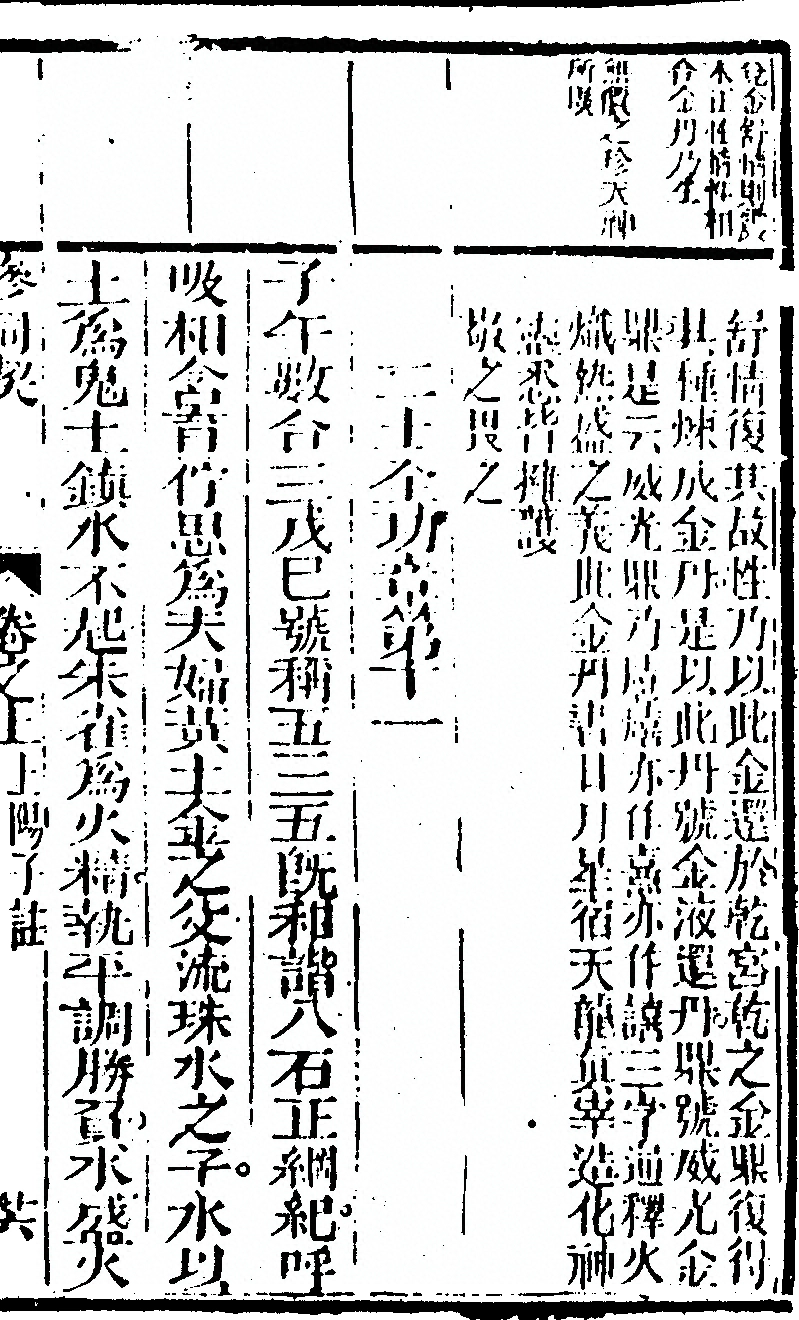 兌金舒情則說
木正性情性相
合金丹乃生
無價之珍天神
所護
舒情復其故性乃以此金還於乾宮乾之金鼎復得
其種煉成金丹是以此丹號金液還丹鼎號威光金
鼎是云威光鼎乃熺熺亦作熹亦作譆三字通釋火
熾然盛之義此金丹諸日月星宿天龍真宰造化神
悉皆擁護
敬之畏之
二土全功章第十一
子午數合三戊己號稱五三五既和諧八石正綱紀呼
吸相含育佇思為夫婦黃土金之父流珠水之子水以
土為鬼土鎮水不起朱雀為火精執平調勝負水盛火
參同契
卷之上 上陽子註